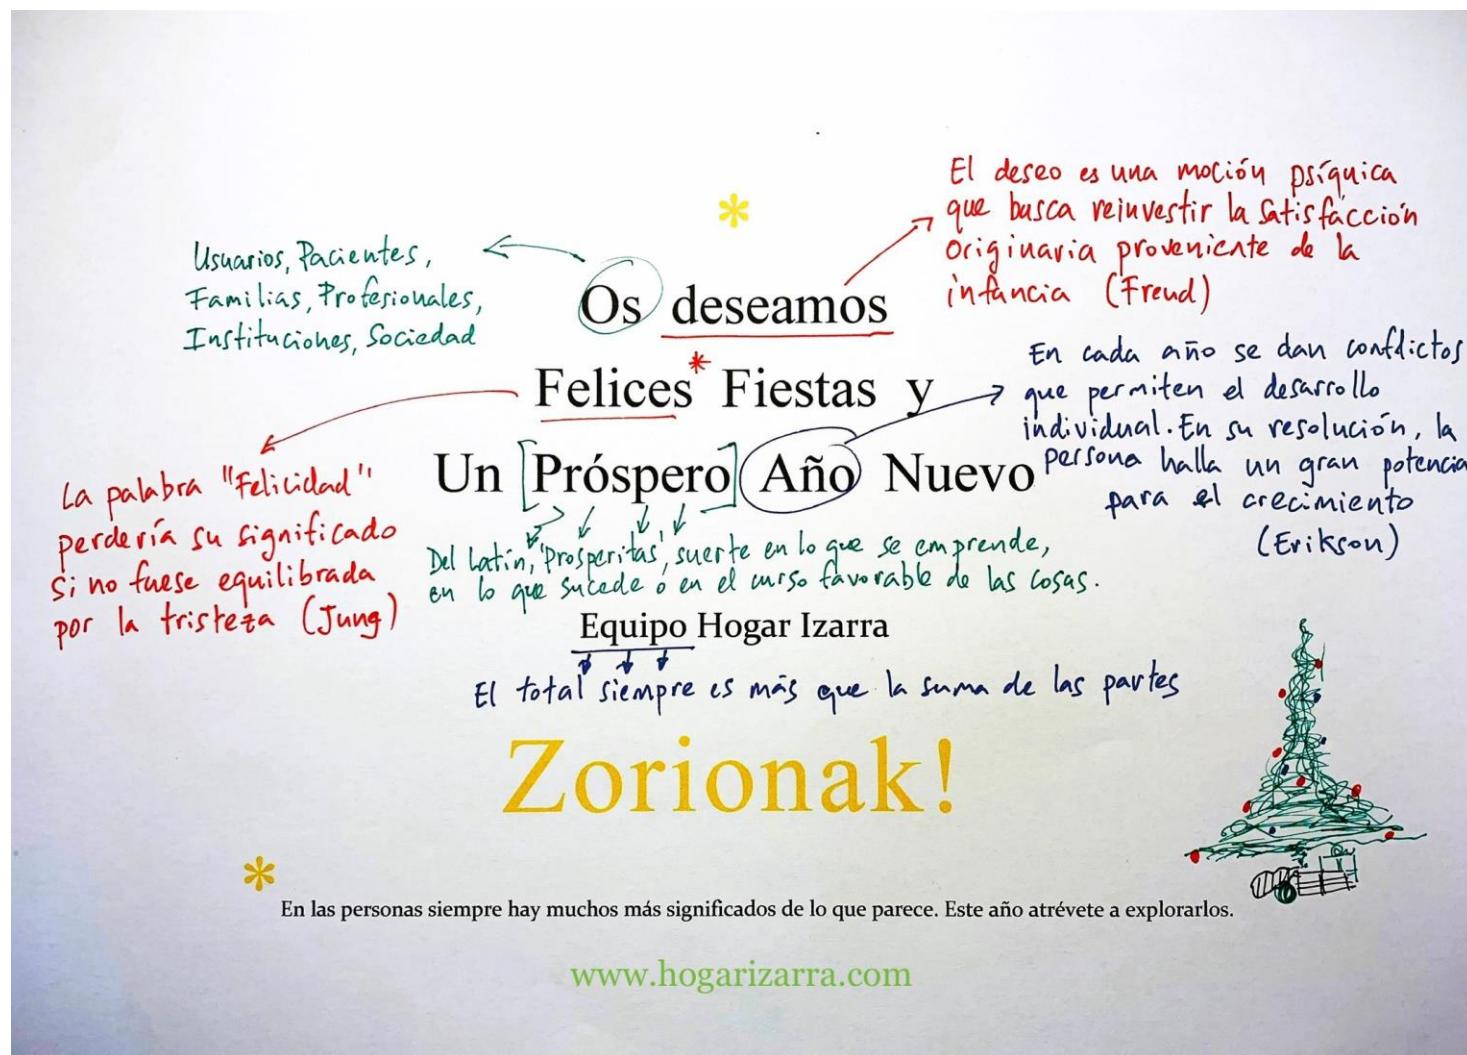 *
El deseo es una moción psíquica
que busca reinvestir la satisfacción
originaria proveniente de la
infancia (Freud)
Usuarios, Pacientes,
Familias, Profesionales,
Instituciones, Sociedad
Os deseamos
Felices* Fiestas y
Un [Próspero] Año Nuevo
En cada año se dan conflictos
que permiten el desarrollo
individual. En su resolución, la
persona halla un gran potencia
para el crecimiento
(Erikson)
La palabra "Felicidad"
perdería su significado
si no fuese equilibrada
por la tristeza (Jung)
Del latín, 'prosperitas', suerte en lo que se emprende,
en lo que sucede o en el curso favorable de las cosas.
Equipo Hogar Izarra
El total siempre es más que la suma de las partes
Zorionak!
*
En las personas siempre hay muchos más significados de lo que parece. Este año atrévete a explorarlos.
www.hogarizarra.com